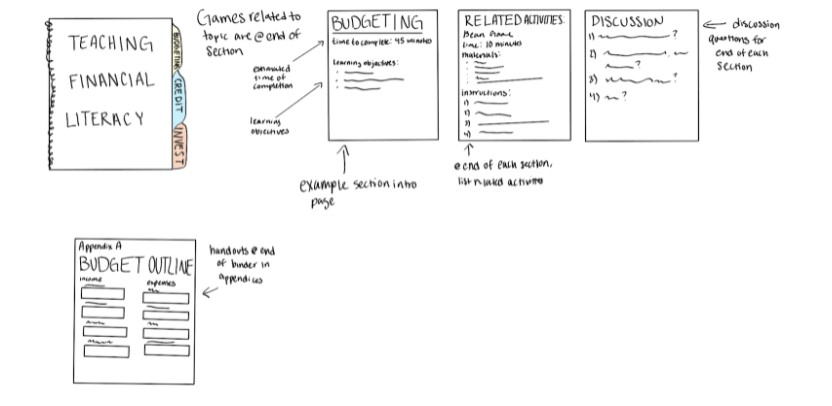 TEACHING
FINANCIAL
LITERACY
BUDGETING
CREDIT
INVEST
Games related to
topic are @ end of
Section
estimated
time of
completion
learning
objectives
BUDGETING
time to complete: 45 minutes
learning objectives:
example section intro
page
RELATED ACTIVITIES
Bean Game
time: 10 minutes
materials:
instructions:
1)
2)
3)
4)
@ end of each section,
list related activities
DISCUSSION
1) ?
2)
?
3) ?
4) ?
discussion
questions for
end of each
section
Appendix A
BUDGET OUTLINE
income
expenses
handouts @ end
of binder in
appendices